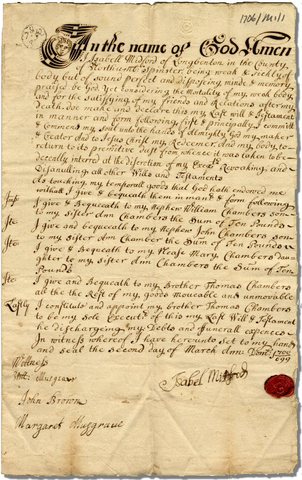 1706/M1/1
In the name of God Amen
I Isabell Midford of Longbenton in the County
of Northumb Spinster being weak & sickly of
body but of sound perfect and disposing minde & memory
praised be God Yet considering the Mortality of my weak body
and for the satisfying of my friends and Relations after my
death doe make and declare this my Last will & Testament
in manner and form following, first & principally I committ &
Commend my soul unto the hands of Almighty God my maker
& Creator and to Jesus Christ my Redeemer And my body to
return to its primitive dust from whence it was taken to be
decently interred at the discretion of my Revoaking and
Disanulling all other Wills and Testaments
As touching my temporal goods that God hath endowed me
withall I give & bequeath them in manr & form following
I give & Bequeath to my Nephew William Chambers son
to my sister Ann Chambers the Sum of Ten Pounds
Ite I give and bequeath to my Nephew John Chambers son
to my sister Ann Chamber the Sum of Ten Pounds
Ite I give & Bequeath to my Nease Mary Chambers dau
ghter to my sister Ann Chambers the Sum of Ten
Pounds
Ite I give and Bequeath to my Brother Thomas Chambers
all the the Rest of my goods moveable and unmovable
Lastly I constitute and appoint my brother Thomas Chambers
to be my sole of this my Last Will & Testament
he discharging my Debts and Funerall expences
In witness whereof I have hereunto set my hand
and seal the second day of March Ann Dom
Wittness
Musgrave
Isabel Midford
John Brown
Margaret Musgrave